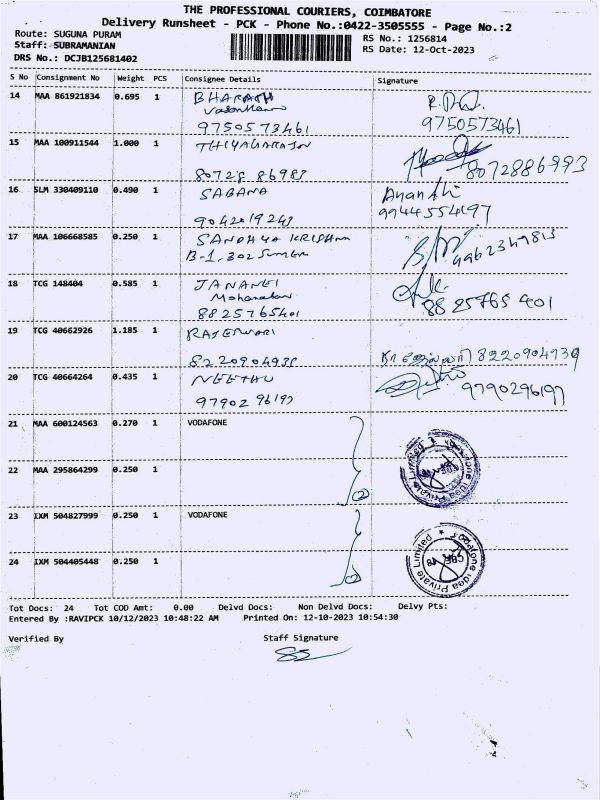 THE PROFESSIONAL COURIERS, COIMBATORE
Delivery Runsheet - PCK - Phone No.:0422-3505555 - Page No.:2
Route: SUGUNA PURAM RS No.: 1256814
Staff: SUBRAMANIAN RS Date: 12-Oct-2023
DRS No.: DCJB125681402
S No Consignment No Weight PCS Consignee Details Signature
14 MAA 861921834 0.695 1 BHARATH
9750573461 9750573461
15 MAA 100911544 1.000 1 THIYAGARAJN
80728 86983 8072886993
16 SLM 330409110 0.490 1 SABANA Ananthi
9042019243 9944554197
17 MAA 106668585 0.250 1 SANDHYA KRISHNA
B-1, 302 9962349813
18 TCG 148404 0.585 1 JANANEI
8825765401 8825765401
19 TCG 40662926 1.185 1 RAJESWARI
8220904939 8220904939
20 TCG 40664264 0.435 1 NEETHU
97902 96197 9790296197
21 MAA 600124563 0.270 1 VODAFONE
22 MAA 295864299 0.250 1
2
Vodafone Idea Private Limited
23 IXM 504827999 0.250 1 VODAFONE
24 IXM 504405448 0.250 1
2
Vodafone Idea Private Limited
Tot Docs: 24 Tot COD Amt: 0.00 Delvd Docs: Non Delvd Docs: Delvy Pts:
Entered By :RAVIPCK 10/12/2023 10:48:22 AM Printed On: 12-10-2023 10:54:30
Verified By Staff Signature